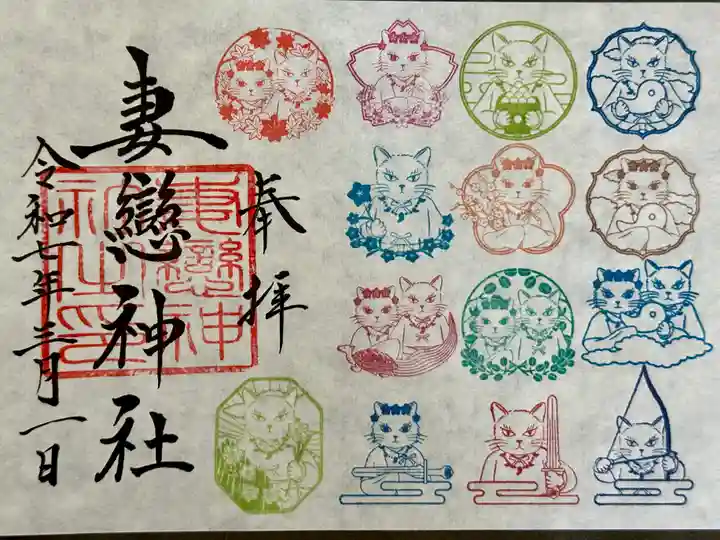 奉拝
妻戀神社
令和七年三月一日
妻戀神社印